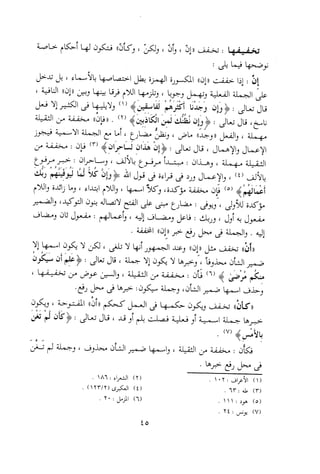 تخفيفها : تخفف «إن» ، وأن ، ولكن ، وكأن» فتكون لها أحكام خاصة
نوضحها فيما يلى :
إن : إذا خففت «إن» المكسورة الهمزة بطل اختصاصها بالأسماء ، بل تدخل
على الجملة الفعلية وتهمل وجوبا ، وتلزمها اللام فرقا بينها وبين «إن» النافية ،
قال تعالى : ﴿وإن وجدنا أكثرهم لفاسقين﴾ (١) ولايليها فى الكثير إلا فعل
ناسخ ، قال تعالى : ﴿وإن نظنك لمن الكاذبين﴾ (٢) . «فإن» مخففة من الثقيلة
مهملة ، والفعل «وجد» ماض ، ونظن مضارع ، أما مع الجملة الاسمية فيجوز
الإعمال والإهمال ، قال تعالى : ﴿إن هذان لساحران﴾ (٣) فإن : مخففة من
الثقيلة مهملة ، وهذان : مبتدأ مرفوع بالألف ، وساحران : خبر مرفوع
بالألف (٤) ، والإعمال ورد فى قراءة فى قول الله ﴿وإن كلاً لما ليوفينهم ربك
أعمالهم﴾ (٥) فإن مخففة مؤكدة، وكلاً اسمها ، واللام ابتداء ، وما زائدة واللام
مؤكدة للأولى ، ويوفى : مضارع مبنى على الفتح لاتصاله بنون التوكيد ، والضمير
مفعول به أول ، وربك : فاعل ومضاف إليه ، وأعمالهم : مفعول ثان ومضاف
إليه . والجملة فى محل رفع خبر «إن» المخففة .
«أن» تخفف مثل «إن» وعند الجمهور أنها لا تلغى ، لكن لا يكون اسمها إلا
ضمير الشأن محذوفاً ، وخبرها لا يكون إلا جملة ، قال تعالى : ﴿علم أن سيكون
منكم مرضى﴾ (٦) فأن : مخففة من الثقيلة ، والسين عوض من تخفيفها ،
وحذف اسمها ضمير الشأن، وجملة سيكون : خبرها فى محل رفع.
«كأن» تخفف ويكون حكمها فى العمل كحكم «أن» المفتوحة ، ويكون
خبرها جملة اسمية أو فعلية فصلت بلم أو قد ، قال تعالى : ﴿كأن لم تغن
بالأمس﴾ (٧) .
فكأن : مخففة من الثقيلة ، واسمها ضمير الشأن محذوف ، وجملة لم تغن
فى محل رفع خبرها .
(١) الأعراف : ١٠٢ .
(٢) الشعراء : ١٨٦ .
(٣) طه : ٦٣ .
(٤) العكبرى (١٢٣/٢) .
(٥) هود : ١١١ .
(٦) المزمل : ٢٠ .
(٧) يونس : ٢٤ .
٤٥